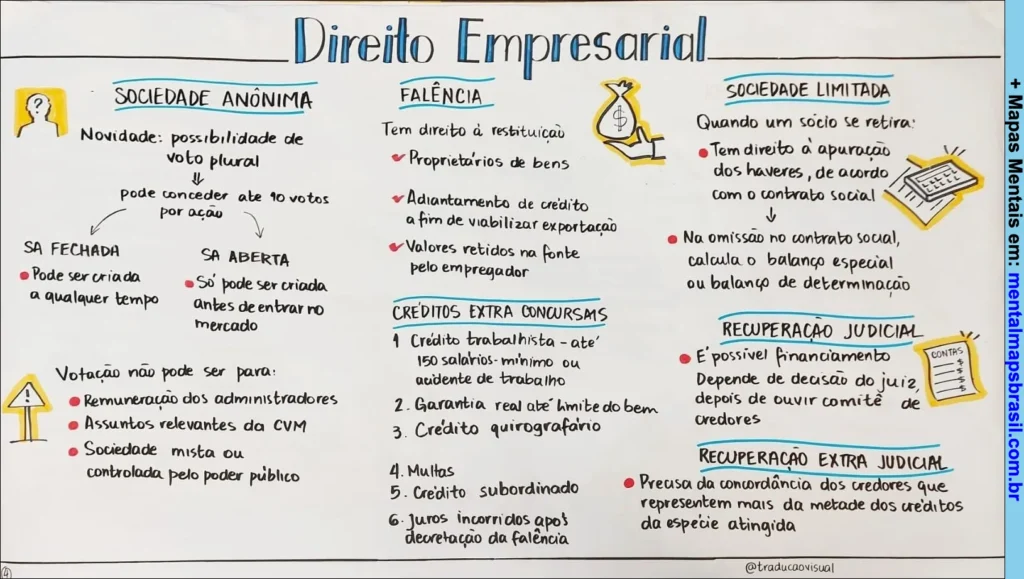 Direito Empresarial
SOCIEDADE ANÔNIMA
Novidade: possibilidade de
voto plural
pode conceder ate 10 votos
por ação
SA FECHADA
Pode ser criada
a qualquer tempo
SA ABERTA
Só pode ser criada
antes de entrar no
mercado
Votação não pode ser para:
Remuneração dos administradores
Assuntos relevantes da CVM
Sociedade mista ou
controlada pelo poder público
FALÊNCIA
Tem direito à restituição
Proprietários de bens
Adiantamento de crédito
a fim de viabilizar exportação
Valores retidos na fonte
pelo empregador
CRÉDITOS EXTRA CONCURSAIS
1 Crédito trabalhista - até
150 salários-mínimo ou
acidente de trabalho
2. Garantia real até limite do bem
3. Crédito quirografário
4. Multas
5. Crédito subordinado
6. Juros incorridos após
decretação da falência
SOCIEDADE LIMITADA
Quando um sócio se retira:
Tem direito à apuração
dos haveres, de acordo
com o contrato social
Na omissão no contrato social,
calcula o balanço especial
ou balanço de determinação
RECUPERAÇÃO JUDICIAL
É possível financiamento
Depende de decisão do juiz,
depois de ouvir comitê de
credores
CONTAS
$
$
$
$
RECUPERAÇÃO EXTRA JUDICIAL
Precisa da concordância dos credores que
representem mais da metade dos créditos
da espécie atingida
@traducaovisual
4
?
!
$
+ Mapas Mentais em: mentalmapsbrasil.com.br